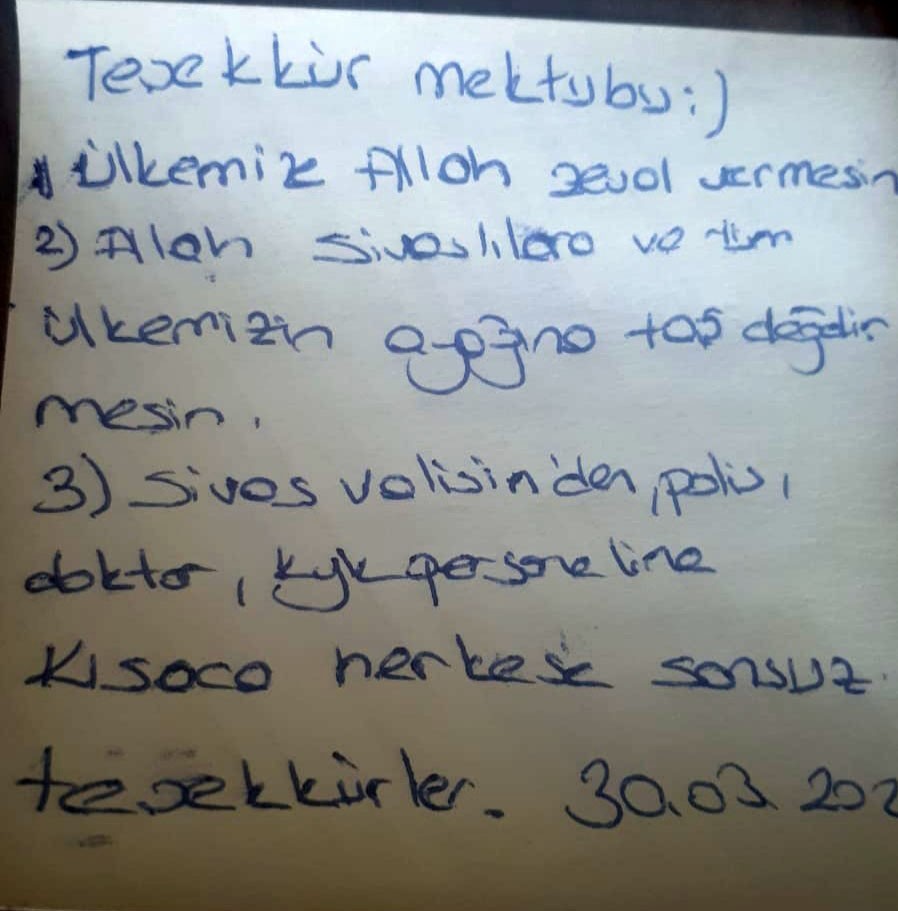 Teşekkür mektubu:)
1 Ülkemize Allah zeval vermesin
2) Allah Sivaslılara ve tüm
ülkemizin ayağına taş değdir
mesin.
3) Sivas valisin'den, polis,
doktor, kyk personeline
Kısaca herkese sonsuz
teşekkürler. 30.03.202